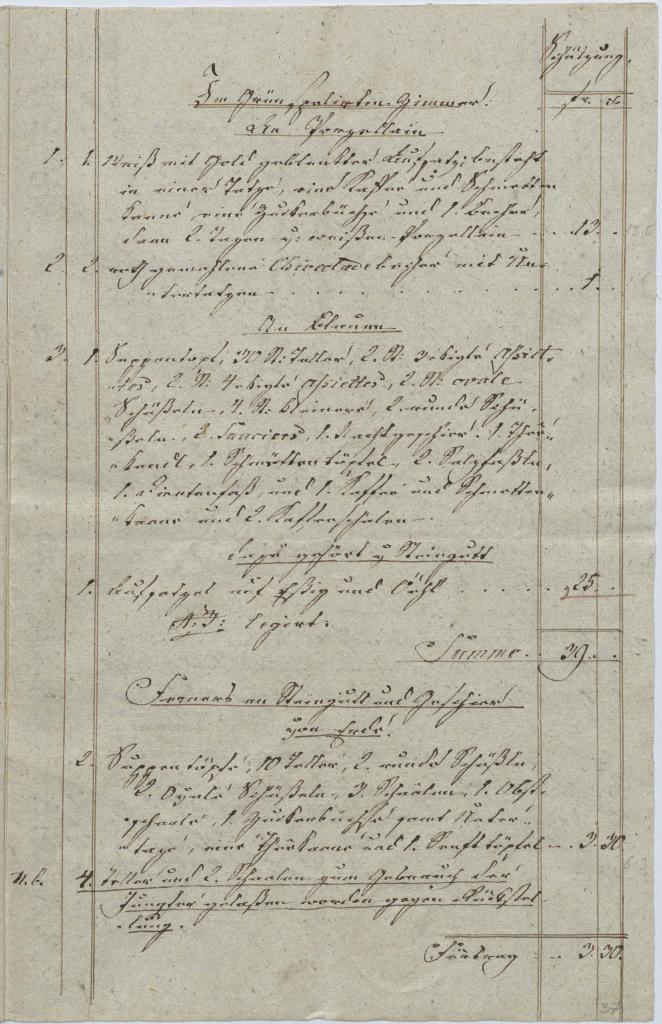 Schätzung.
fr. xr
Im Grün Spalirten Zimmer.
An Porzellain
1. 1. Weiß mit Gold geblenkter Aufsatz, bestehet
in einer Tatze, eine Kaffee und Schmetten
kanne, eine Zukerbüchse und 1. Becher,
dann 2. Tazen v: weißen Porzellain . . 13.
2. 2. roth gemahlene Chiocoladebecher mit Un-
-tertatzen . . . . . . 1.
An Blauen
3. 1. Suppentopf, 30 St: Teller, 2. St: 3ekigte assiet-
-tes, 2. St: 4ekigte assiettes, 2. St: ovale
Schüßeln, 4. St: kleinere, 2. runde Schü-
-ßeln, 2. Sauciers, 1. Nachtgeschier. 1. Thee-
-kandl, 1. Schmettentöpfel, 2. Salzfäßln,
1. Tintenfaß, und 1. Kaffee und Schmetten-
-kanne und 2. Kaffeeschalen.
dazu gehört v Steingutt
1. Aufsatzel auf Eßig und Öehl . . . . . 25.
Summe . . 39. .
Ferners an Steingutt und Geschier
von Erde.
2. Suppentöpfe, 10 Teller, 2. runde Schüßeln,
2. Ovale Schüßeln, 3. Schaalen, 1. Obst-
-schaale, 1. Zuckerbüchse samt Unter-
-taze, eine Theekanne und 1. Senfttöpfel . . 3. 30.
N.b. 4. Teller und 2. Schaalen zum Gebrauch der
Jungfer gelaßen worden gegen Rückstel-
-lung.
Fürtrag . . 3. 30.
37